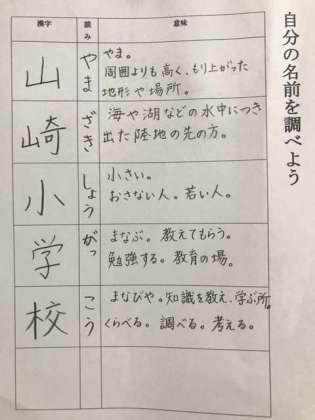 自分の名前を調べよう
漢字 読み 意味
山 やま やま。
周囲よりも高く、もり上がった
地形や場所。
崎 ざき 海や湖などの水中につき
出た陸地の先の方。
小 しょう 小さい。
おさない人。若い人。
学 がっ まなぶ。教えてもらう。
勉強する。教育の場。
校 こう まなびや。知識を教え、学ぶ所。
くらべる。調べる。考える。